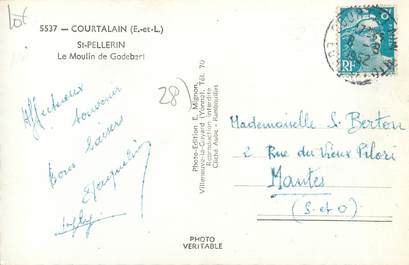 Lot
5537 — COURTALAIN (E.-et-L.)
St-PELLERIN
Le Moulin de Godebert
28)
Affectueux
souvenir
bons baisers
Photo-Edition E. Mignon,
Villeneuve-la-Guyard (Yonne). Tél. 70
Reproduction interdite
Cliché Aube - Rambouillet
RF
Mademoiselle S. Berton
2 Rue du Vieux Pilori
Mantes
(S-et-O)
PHOTO
VERITABLE